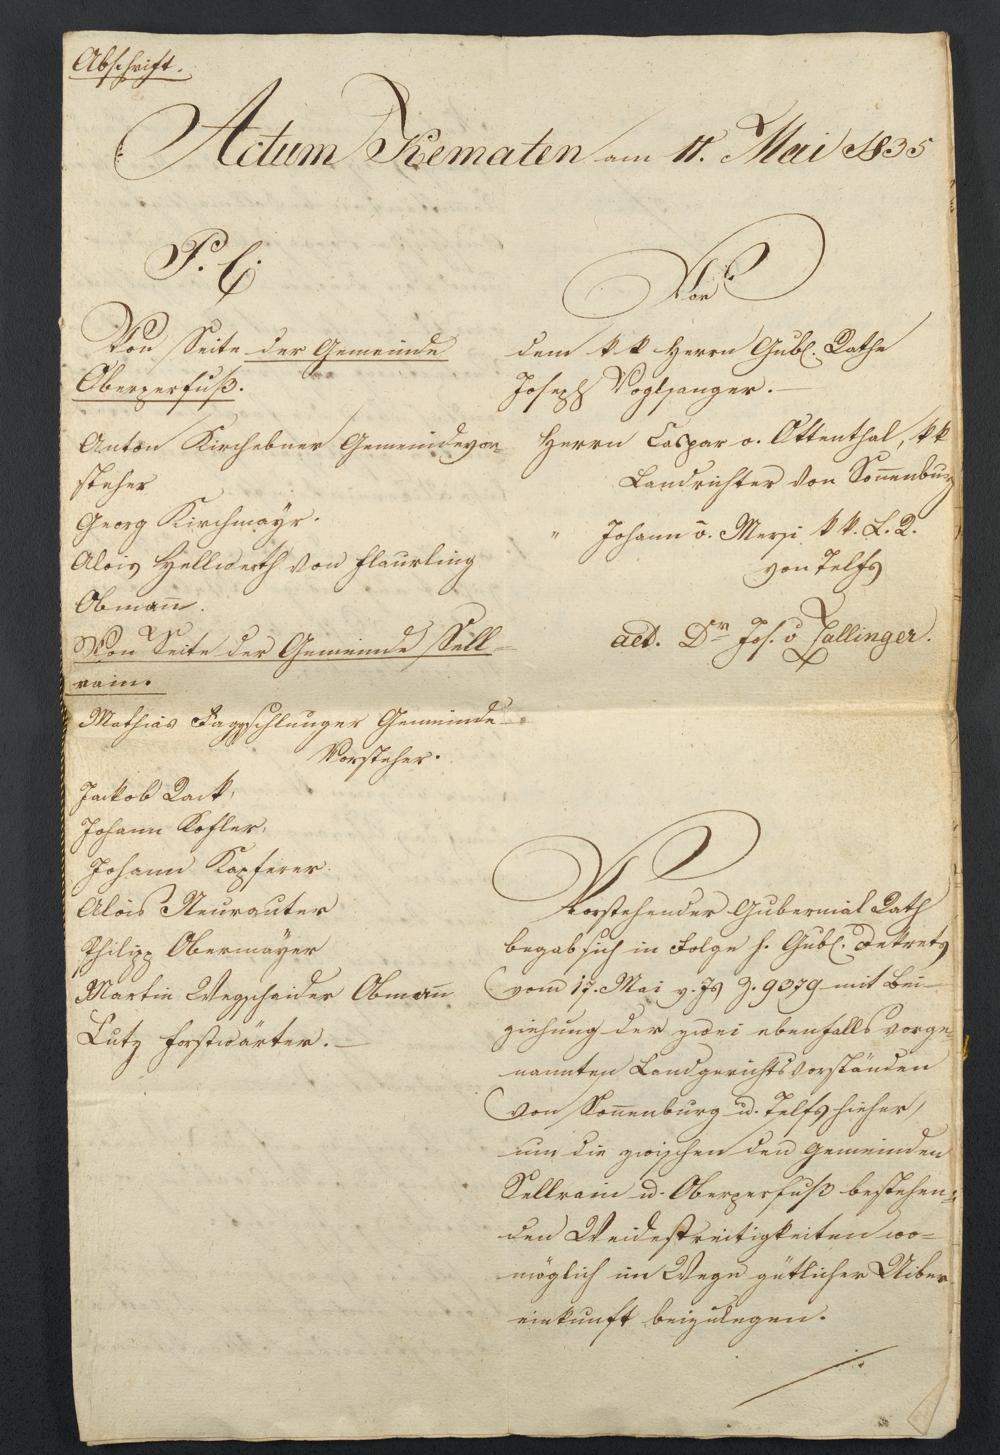 Abschrift.
Actum Kematen am 11. Mai 1835
P. C.
Von Seite der Gemeinde
Oberperfuß.
Anton Kirchebner Gemeindevor-
steher
Georg Kirchmayr.
Alois Hellweth von Flaurling
Obmañ.
Von Seite der Gemeinde Sell=
rain.
Mathias Fagschlunger Gemeinde=
Vorsteher.
Jackob Rack,
Johann Kofler,
Johann Kapferer.
Alois Neurauter
Philipp Obermayer
Martin Wegscheider Obmañ
Lutz Forstwärter.
Vor
dem k k Herrn Gubl. Rathe
Joseph Voglsanger.
Herrn Caspar v. Ottenthal, k k
Landrichter von Soñenburg
" Johann v. Mersi k k. L. R.
von Telfs
act. Dr Jos. v Zallinger.
Vorstehender Gubernial Rath
begab sich in Folge h. Gubl. Dekrets
vom 17. Mai v. Js Z. 9379 mit Bei-
ziehung der zwei ebenfalls vorge=
nannten Landgerichtsvorständen
von Soñenburg u. Telfs hieher,
um die zwischen den Gemeinden
Sellrain u. Oberperfuß bestehen=
den Weidestreitigkeiten wo=
möglich im Wege gütlicher Uiber
einkunft beizulegen.